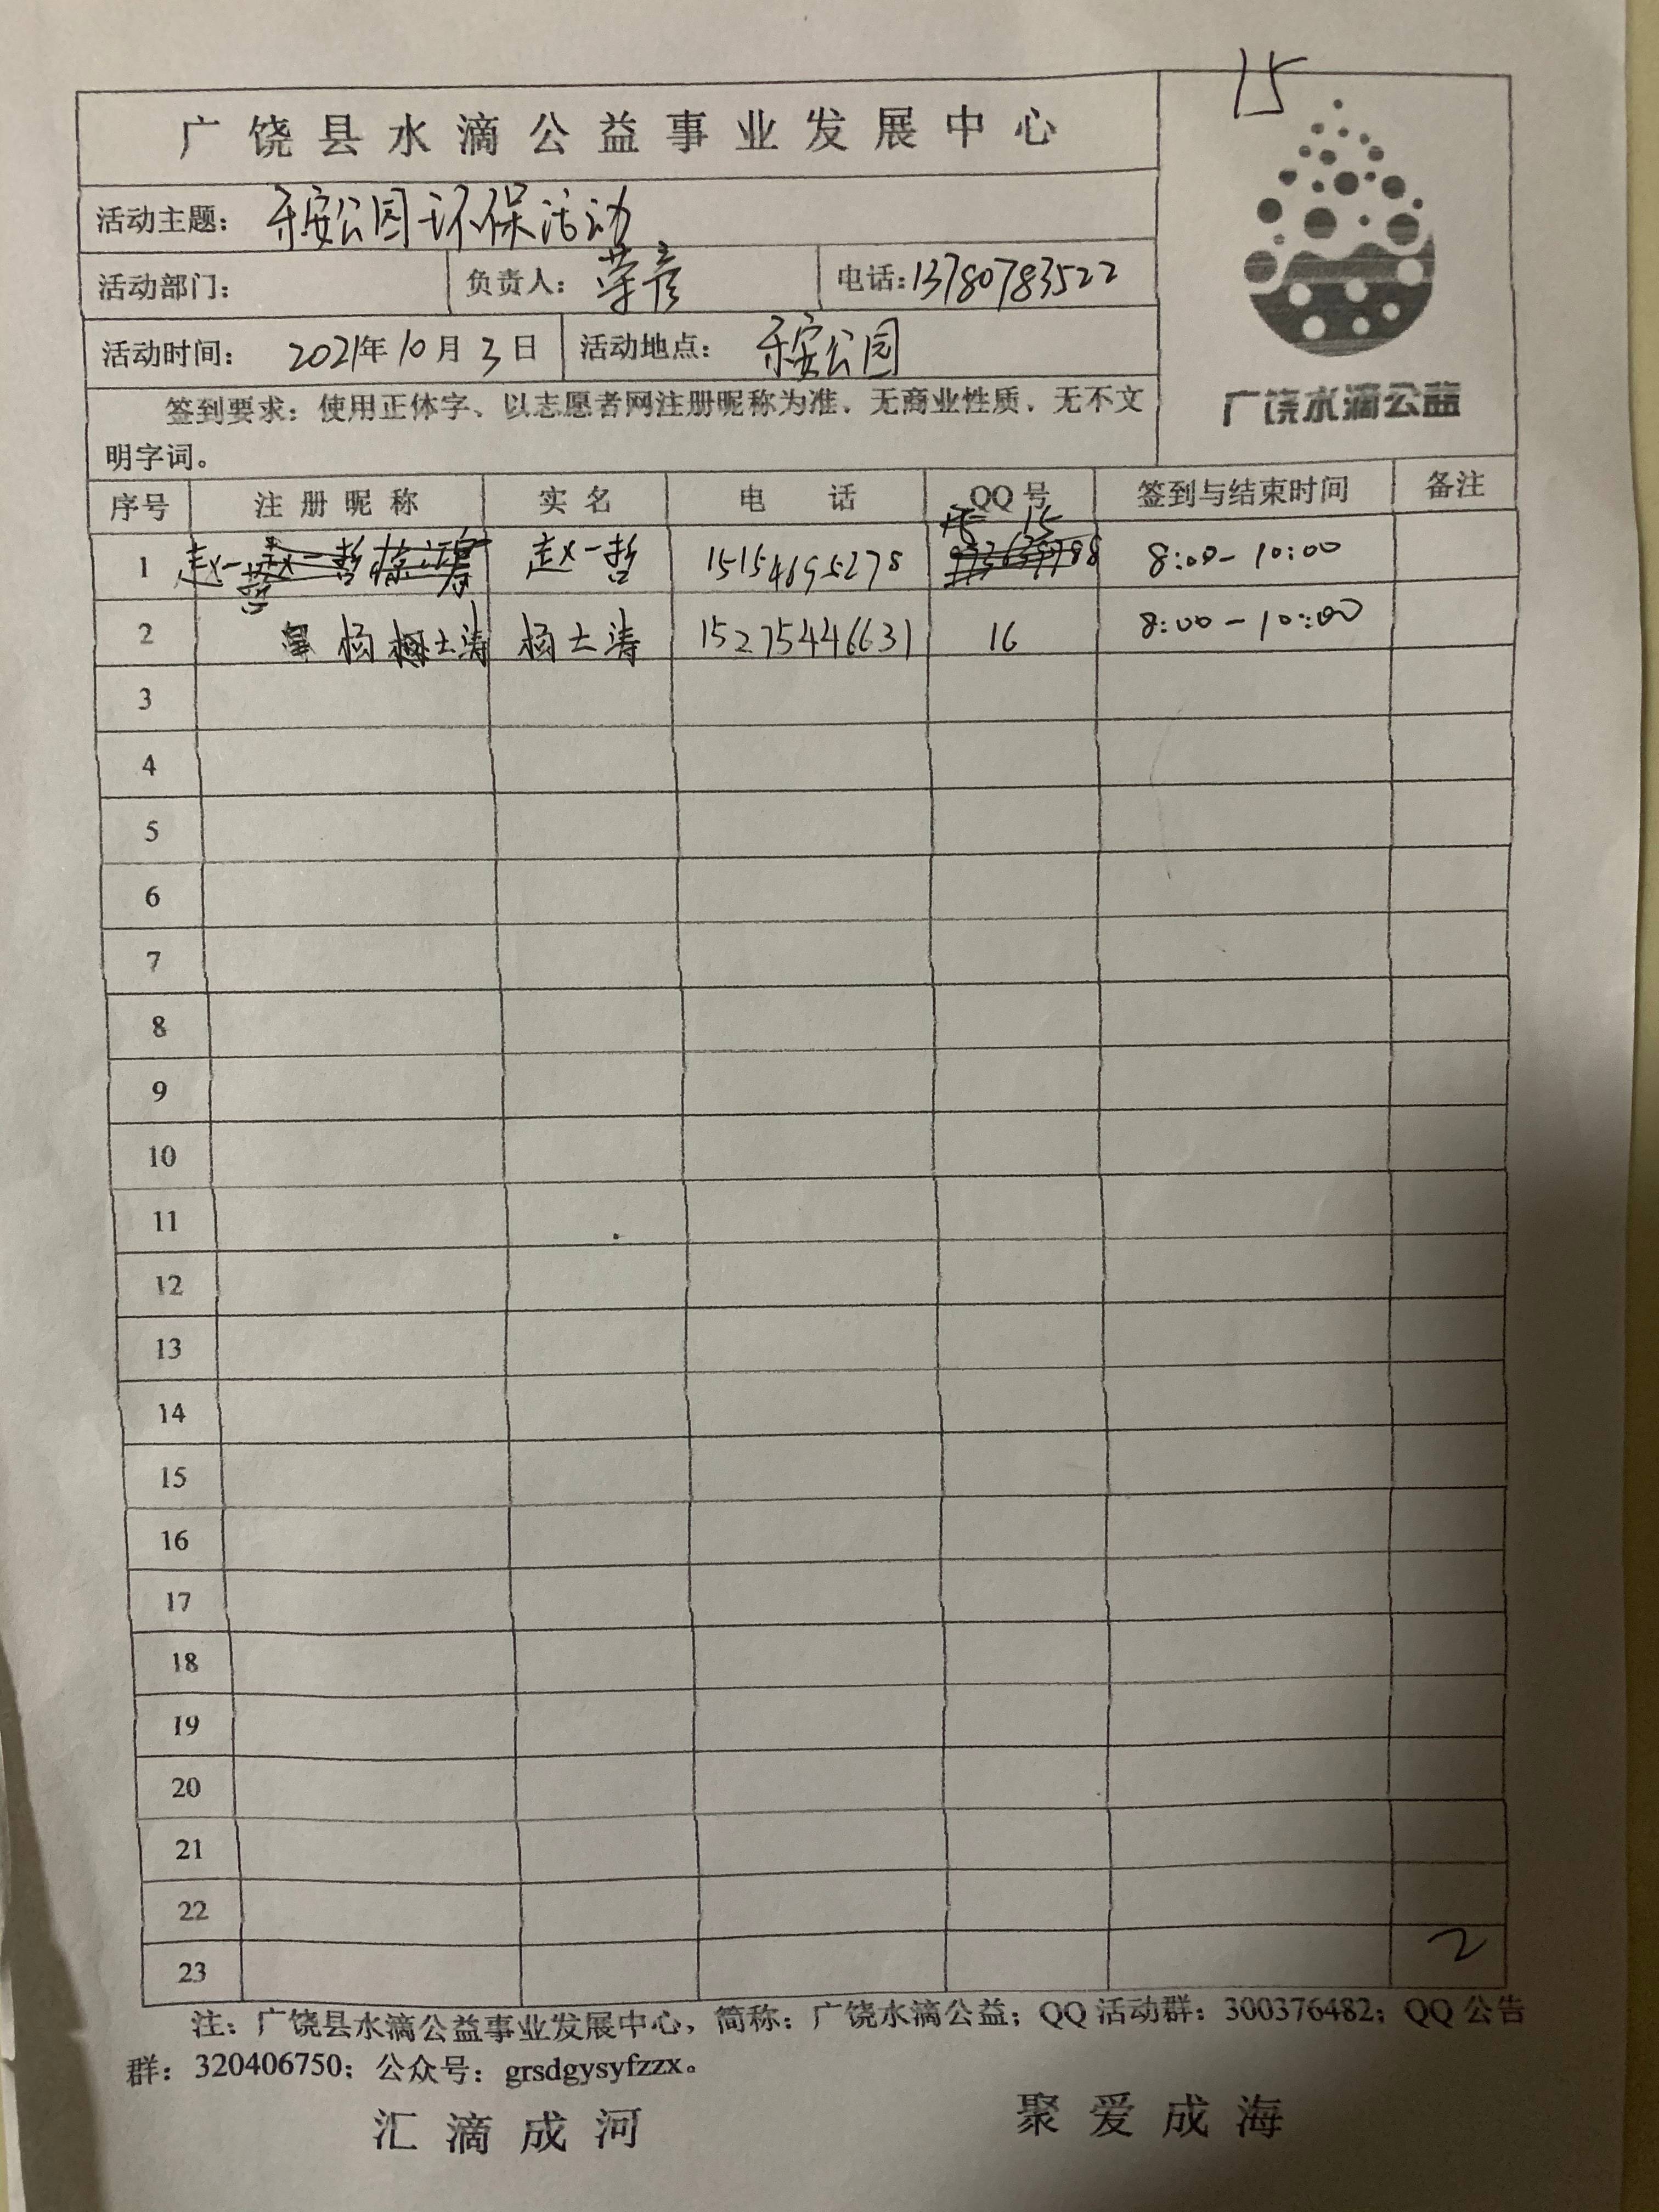 15
广饶县水滴公益事业发展中心
活动主题： 乐安公园环保活动
活动部门： 负责人： 荣彦 电话：13780783522
活动时间： 2021年10月3日 活动地点： 乐安公园
广饶水滴公益
签到要求：使用正体字、以志愿者网注册昵称为准、无商业性质、无不文
明字词。
序号 注册昵称 实名 电话 QQ号 签到与结束时间 备注
1 赵一哲 赵一哲 15154695278 15 8:00-10:00
2 杨士涛 杨士涛 15275446631 16 8:00-10:00
3
4
5
6
7
8
9
10
11
12
13
14
15
16
17
18
19
20
21
22
23 2
注：广饶县水滴公益事业发展中心，简称：广饶水滴公益；QQ活动群：300376482；QQ公告
群：320406750；公众号：grsdgysyfzzx。
汇滴成河 聚爱成海